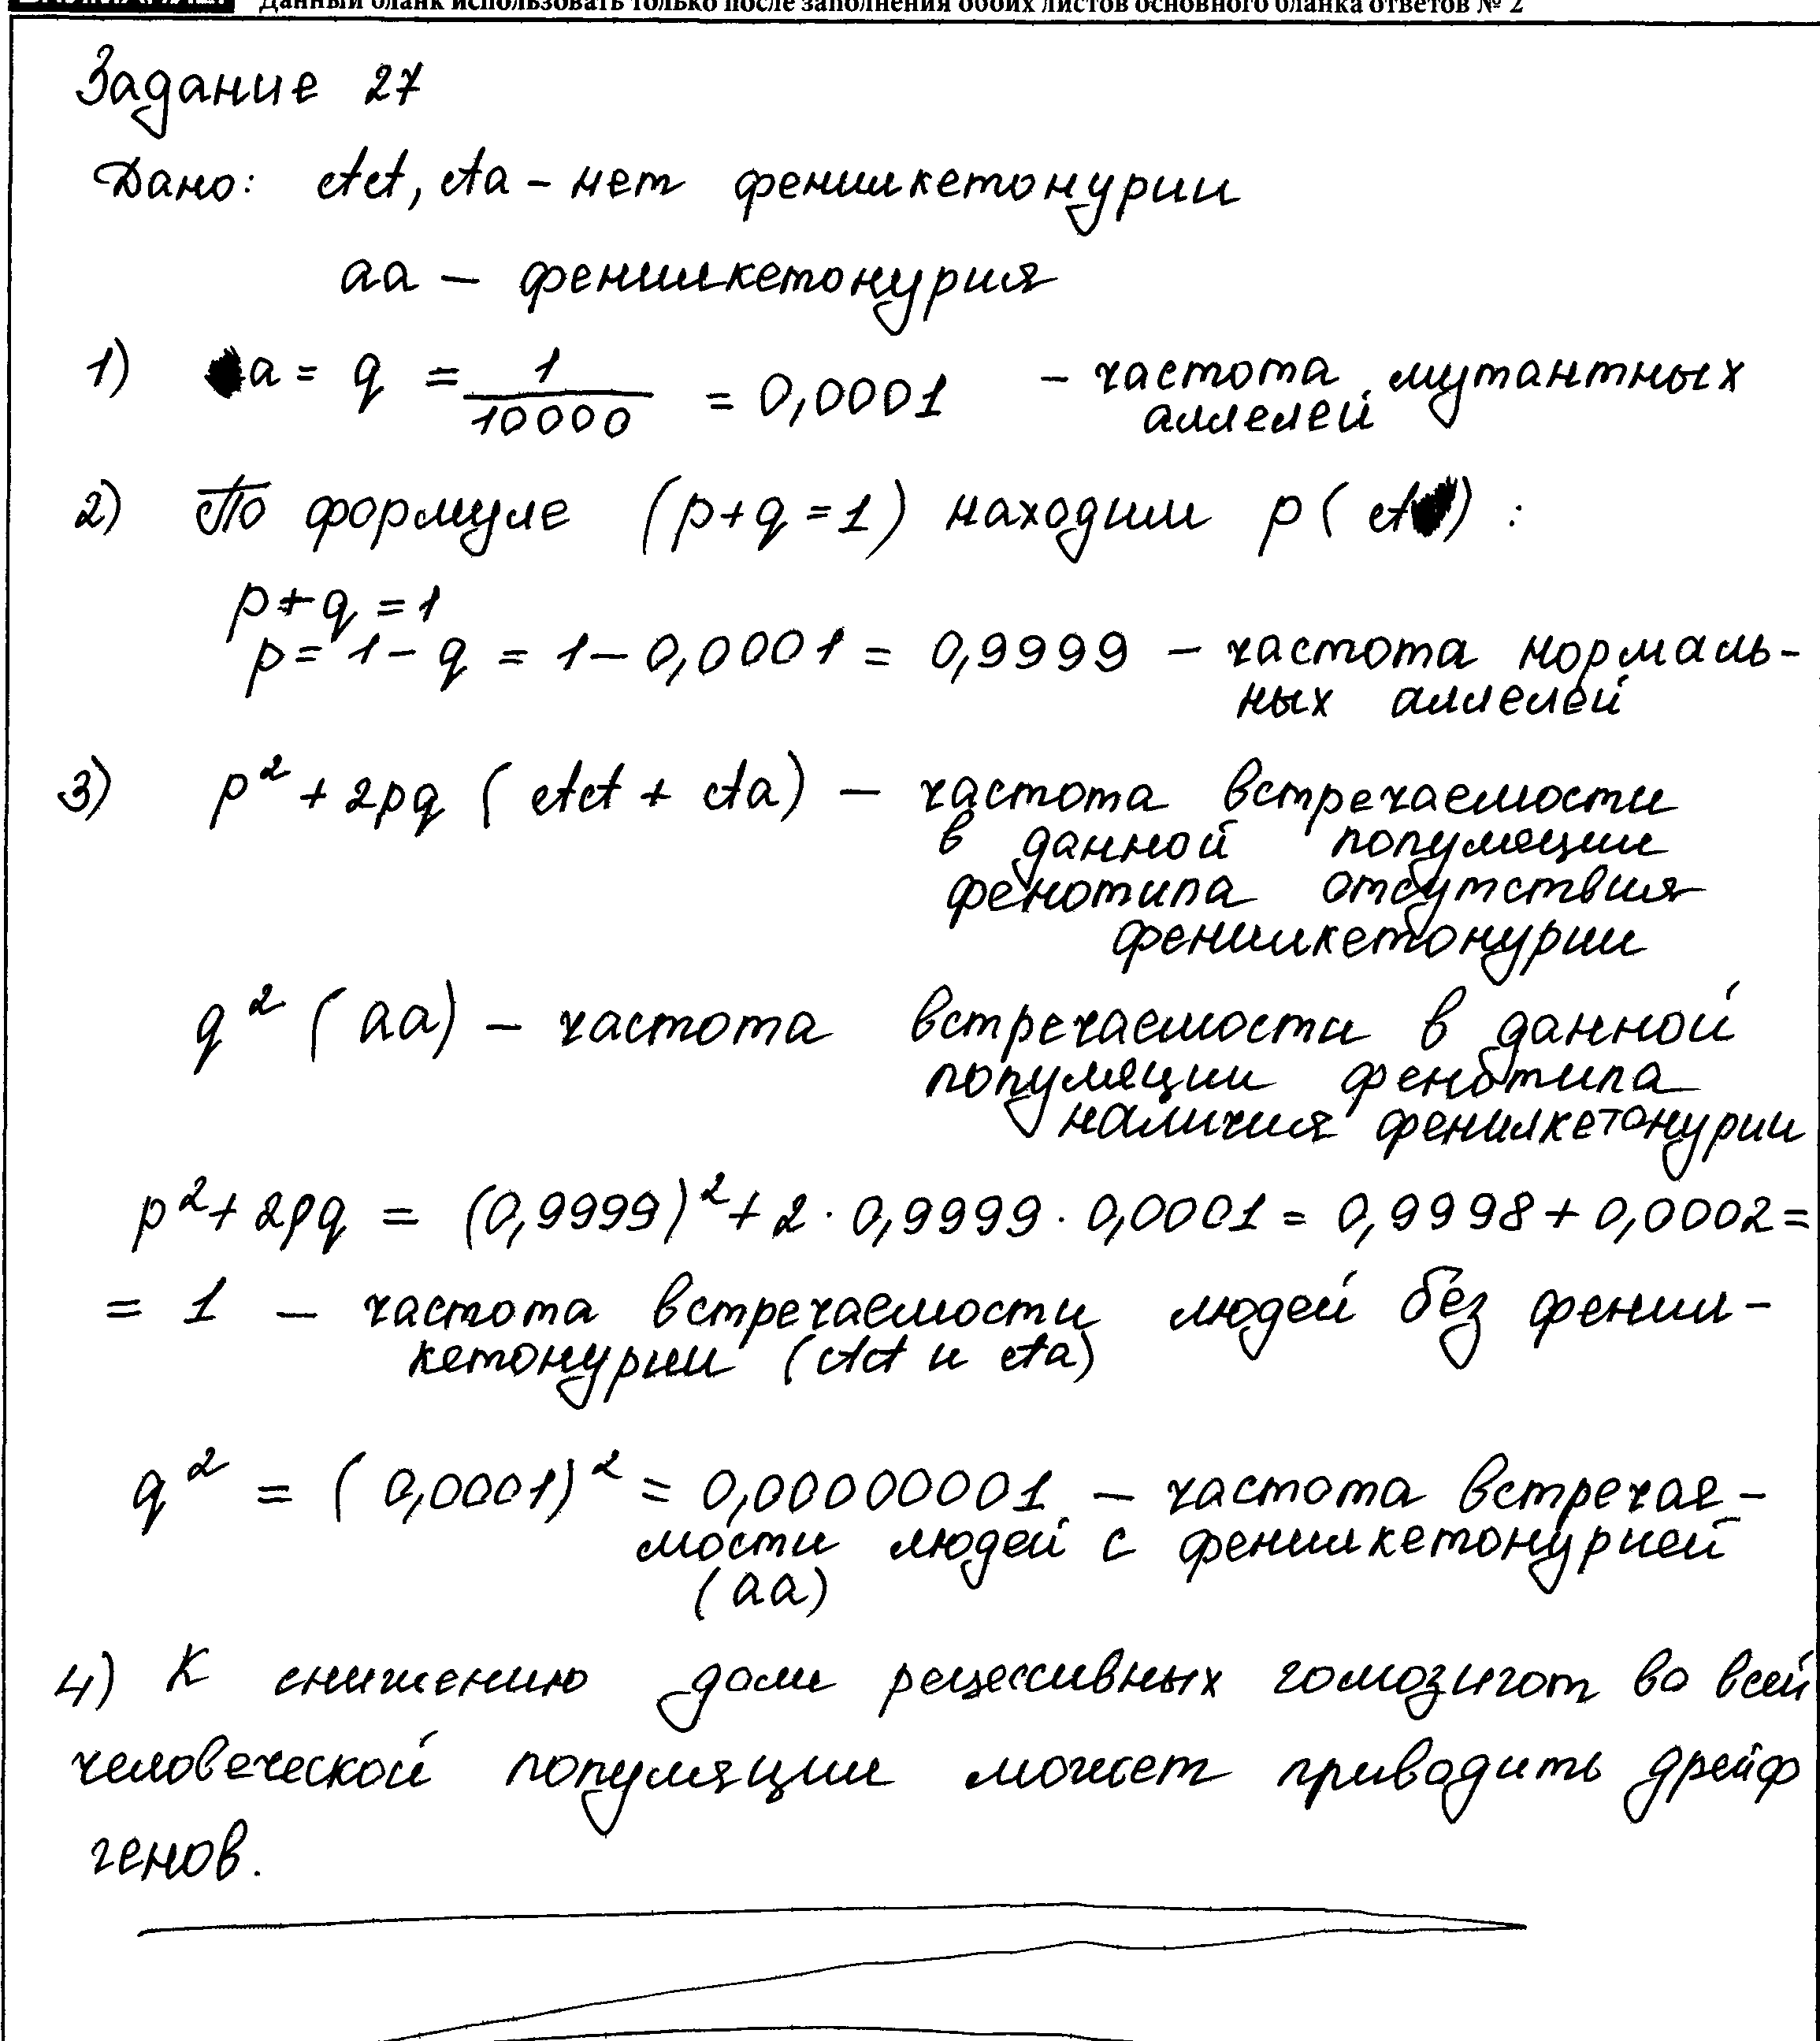 Данный бланк использовать только после заполнения обоих листов основного бланка ответов № 2
Задание 27
Дано: АА, Аа - нет фенилкетонурии
аа — фенилкетонурия
1) а = q = 1/10000 = 0,0001 - частота мутантных
аллелей
2) По формуле (p+q=1) находим p(А):
p+q=1
p=1-q=1-0,0001=0,9999 - частота нормаль-
ных аллелей
3) p²+2pq (АА + Аа) — частота встречаемости
в данной популяции
фенотипа отсутствия
фенилкетонурии
q² (аа) — частота встречаемости в данной
популяции фенотипа
наличия фенилкетонурии
p²+2pq = (0,9999)²+2·0,9999·0,0001=0,9998+0,0002=
= 1 — частота встречаемости людей без фенил-
кетонурии (АА и Аа)
q² = (0,0001)² = 0,00000001 — частота встречае-
мости людей с фенилкетонурией
(аа)
4) К снижению доли рецессивных гомозигот во всей
человеческой популяции может приводить дрейф
генов.